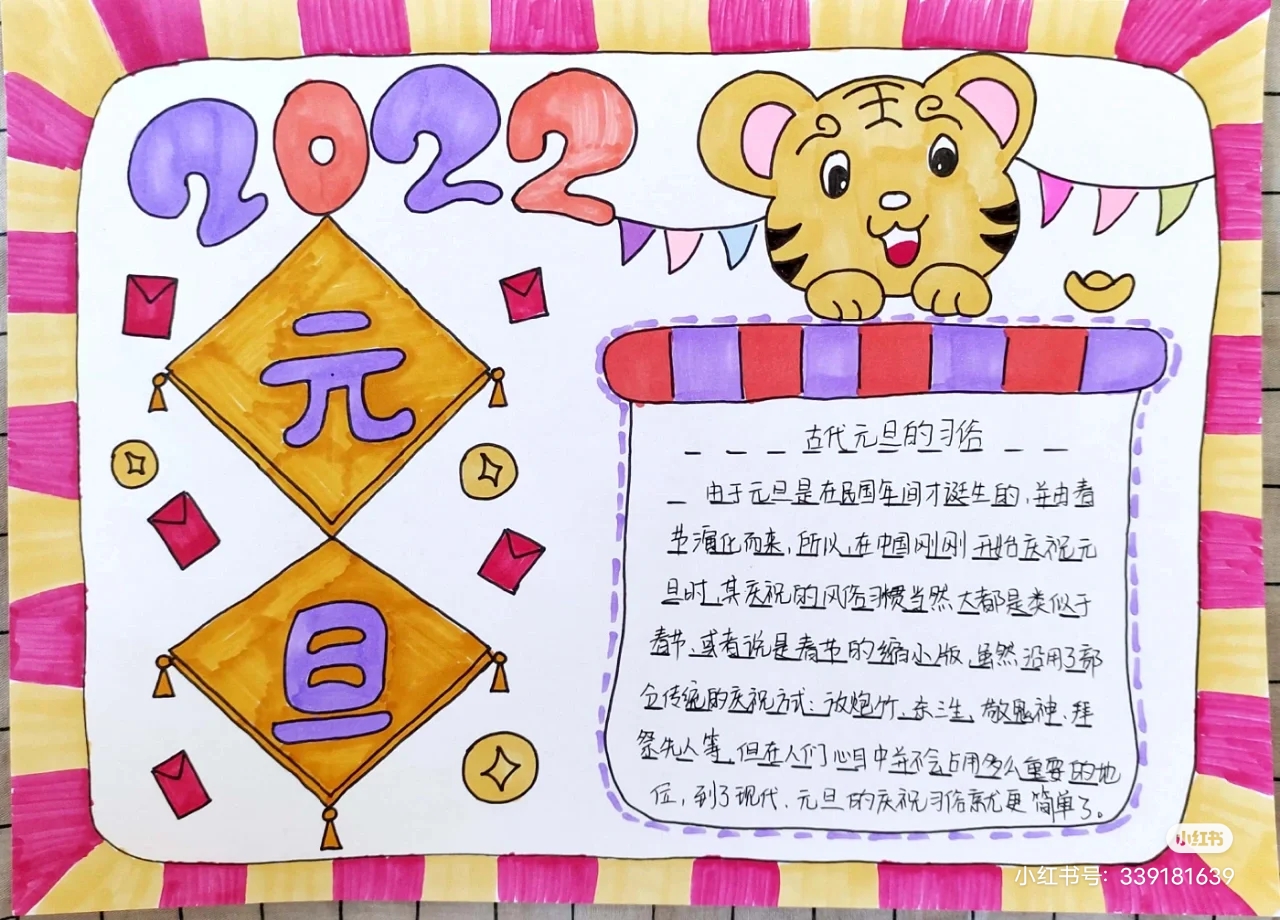 2022
王
元
旦
古代元旦的习俗
由于元旦是在民国年间才诞生的,并由春
节演化而来,所以,在中国刚刚开始庆祝元
旦时,其庆祝的风俗习惯当然大都是类似于
春节、或者说是春节的缩小版,虽然沿用了部
分传统的庆祝方式:放炮竹、杀三生、敬鬼神、拜
祭先人等,但在人们心目中并不会占用多么重要的地
位,到了现代、元旦的庆祝习俗就更简单了。
小红书
小红书号:339181639